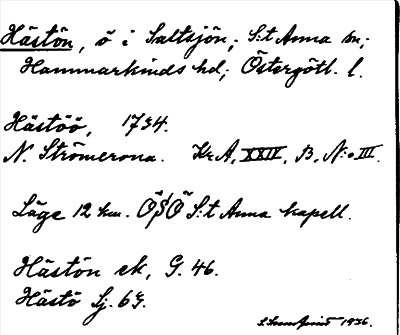 Hästön, ö i Saltsjön; S:t Anna sn;
Hammarkinds hd; Östergötl. l.
Hästöö, 1734.
N. Strömcrona. Kr A, XXIV, B, N:o III.
Läge 12 km. ÖSÖ S:t Anna kapell.
Hästön ek, G. 46.
Hästö Sj. 69.
1936.